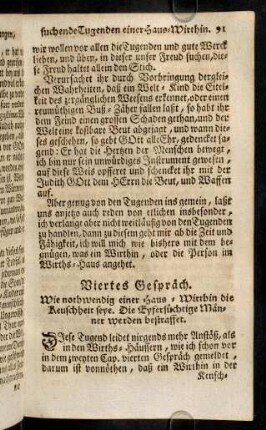 suchende Tugenden einer Haus-Wirthin. 91
wir wollen vor allen die Tugenden und gute Werck
lieben, und üben, in dieser unser Freud suchen, die-
se Freud haltet allein den Stich.
Verursachet ihr durch Vorbringung dergleich-
chen Wahrheiten, daß ein Welt-Kind die Eitel-
keit des zergänglichen Weesens erkennet, oder einen
reumüthigen Buß-Zäher fallen laßt, so habt ihr
dem Feind einen grossen Schaden gethan, und der
Welt eine kostbare Beut abgejagt, und wann die-
ses geschehen, so gebt GOtt alle Ehr, gedencket sa-
gend: Er hat die Hertzen der Menschen bewegt,
ich bin nur sein unwürdiges Instrument gewesen,
auf diese Weis opfferet und schencket ihr mit der
Judith GOtt dem HErrn die Beut, und Waffen
auf.
Aber genug von den Tugenden ins gemein, laßt
uns anjetzo auch reden von etlichen insbesonder,
ich verlange aber nicht weitläufig von den Tugenden
zu handlen, dann zu diesem geht mir ab die Zeit und
Fähigkeit, ich will mich wie bishero mit dem be-
gnügen, was ein Wirthin, oder die Person im
Wirths-Haus angehet.
Viertes Gespräch.
Wie nothwendig einer Haus-Wirthin die
Keuschheit seye. Die Eyfersüchtige Män-
ner werden bestraffet.
DIese Tugend leidet nirgends mehr Anstöß, als
in den Wirths-Häusern, wie ich schon vor
in dem zweyten Cap. vierten Gespräch gemeldet,
darum ist vonnöthen, daß ein Wirthin in der
Keusch-